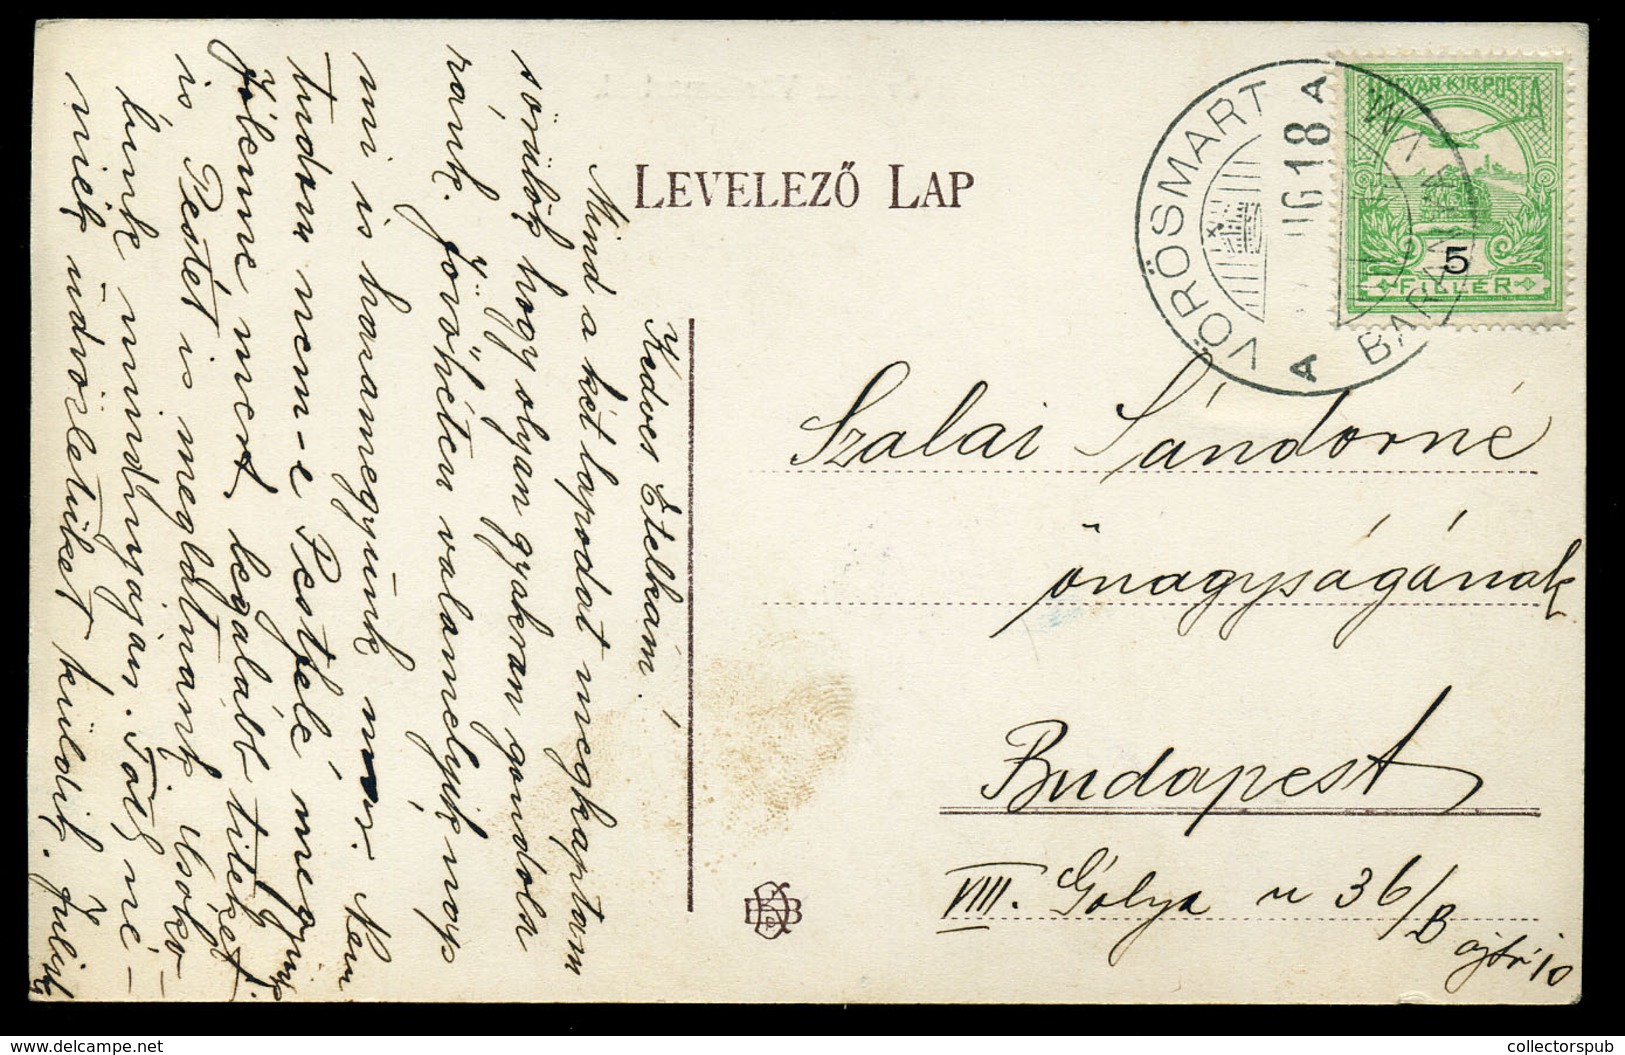 LEVELEZŐ LAP
VÖRÖSMART
BARANYA VM.
A
A
18
MAGYAR KIR. POSTA
5
FILLÉR
Kedves Etelkám.
Mind a két lapodat megkaptam
sörülök hogy olyan gyakran gondolsz
ránk. Jövőhéten valamelyik nap
mi is hazamegyünk már. Nem
tudom nem-e Pestfelé megyünk
Jó lenne mert legalább titeket
is Pestet is meglátnánk. Csoko-
lunk mindnyájan. Tóth né-
niék üdvözletüket küldik. Juliska
Szalai Sándorné
őnagyságának
Budapest
VIII. Gólya u 36/B ajtó 10
www.delcampe.net
collectorspub